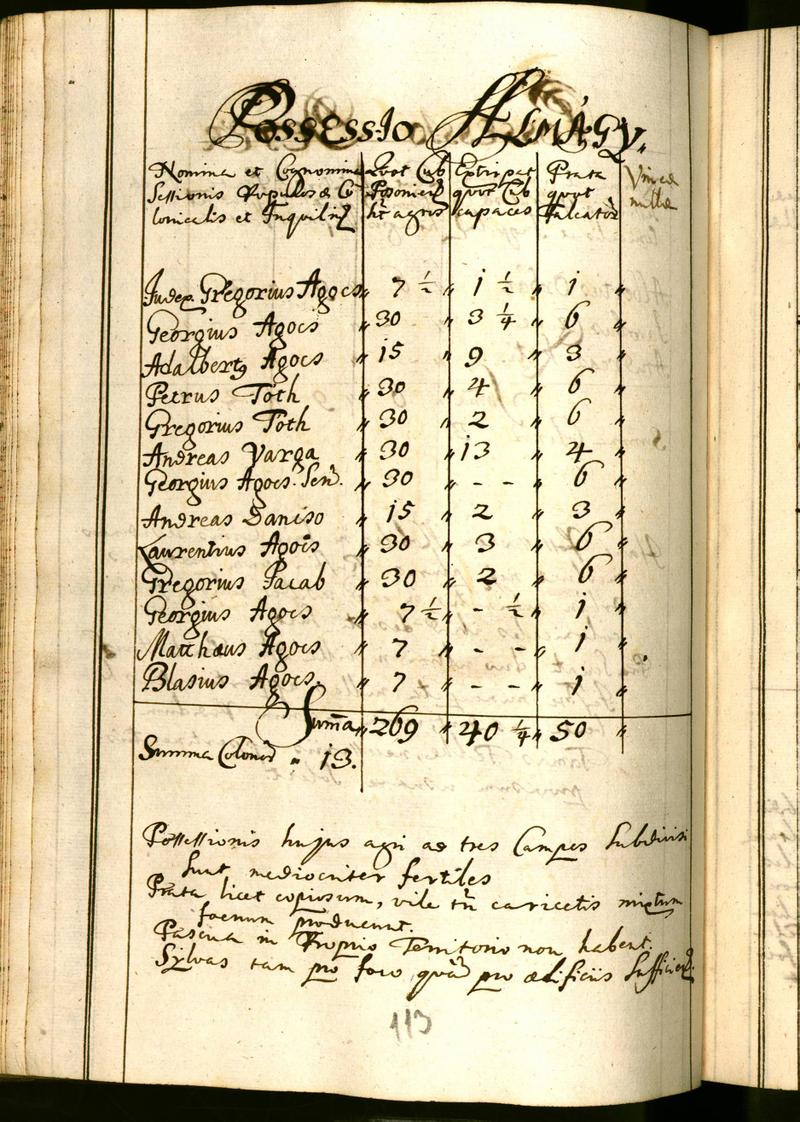 Possessio Almágy.
Nomina et Cognomina Quot Cub Extirpat Prata Vineæ
Sessionis Populosæ Co Posonienſ quot Cub quot nullæ
lonicalis et Inquilinꝝ ht agros capaces Falcatoꝝ
Judex Gregorius Agocs „ 7 ½ „ 1 ½ „ 1 „
Georgius Agocs „ 30 „ 3 ¼ „ 6 „
Adalbertꝰ Agocs „ 15 „ 9 „ 3 „
Petrus Toth „ 30 „ 4 „ 6 „
Gregorius Toth „ 30 „ 2 „ 6 „
Andreas Varga „ 30 „ 13 „ 4 „
Georgius Agocs Sen. „ 30 „ - - „ 6 „
Andreas Daniso „ 15 „ 2 „ 3 „
Laurentius Agocs „ 30 „ 3 „ 6 „
Gregorius Pacab „ 30 „ 2 „ 6 „
Georgius Agocs „ 7 ½ „ - ½ „ 1 „
Matthæus Agocs „ 7 „ - - „ 1 „
Blasius Agocs. „ 7 „ - - „ 1 „
Summa „ 269 „ 40 ¼ „ 50 „
Summa Colonoꝝ „ 13.
Possessionis hujus agri ad tres Campos Subdivisi
Sunt mediocriter fertiles
Prata licet copiosum, vile tñ caricetis mixtum
foenum producunt.
Pascua in Proprio Territorio non habent.
Sylvas tam pro foco quã pro ædificiis Sufficienꝭ.
113